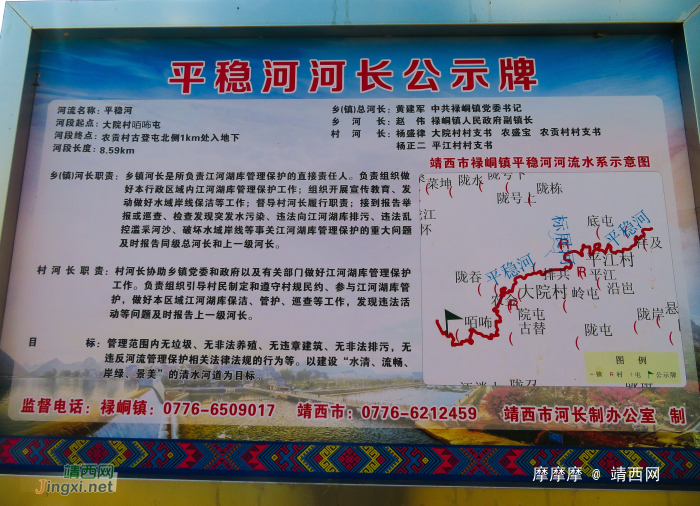 平稳河河长公示牌
河流名称：平稳河
河段起点：大院村咟咘屯
河段终点：农贡村古登屯北侧1km处入地下
河段长度：8.59km
乡(镇)总河长：黄建军 中共禄峒镇党委书记
乡 河 长：赵 伟 禄峒镇人民政府副镇长
村 河 长：杨盛律 大院村村支书 农盛宝 农贡村村支书
杨正二 平江村村支书
乡(镇)河长职责：乡镇河长是所负责江河湖库管理保护的直接责任人。负责组织做
好本行政区域内江河湖库管理保护工作；组织开展宣传教育、发
动做好水域岸线保洁等工作；督导村河长履行职责；接到报告举
报或巡查、检查发现突发水污染、违法向江河湖库排污、违法乱
控滥采河沙、破坏水域岸线等事关江河湖库管理保护的重大问题
及时报告同级总河长和上一级河长。
村 河 长 职 责：村河长协助乡镇党委和政府以及有关部门做好江河湖库管理保护
工作。负责组织引导村民制定和遵守村规民约、参与江河湖库管
护，做好本区域江河湖库保洁、管护、巡查等工作，发现违法活
动等问题及时报告上一级河长。
目 标：管理范围内无垃圾、无非法养殖、无违章建筑、无非法排污，无
违反河流管理保护相关法律法规的行为等。以建设“水清、流畅、
岸绿、景美”的清水河道为目标。
靖西市禄峒镇平稳河河流水系示意图
菜坤 陇水 陇号下
陇号上 陇栋
底屯 平稳河
平江村
陇吞 平稳河 排共 平江
大院村 岭屯 沿岜
咟咘 院屯 陇岸
古替 陇屯
图 例
镇 村 屯 公示牌
监督电话：禄峒镇：0776-6509017 靖西市：0776-6212459 靖西市河长制办公室 制
靖西网
Jingxi.net
摩摩摩 @ 靖西网